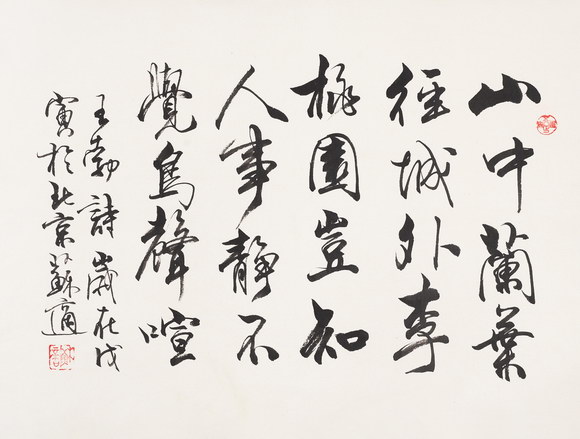 山中蘭葉
徑城外李
桃園豈知
人事靜不
覺鳥聲喧
王勃詩歲在戊
寅於北京蘇適